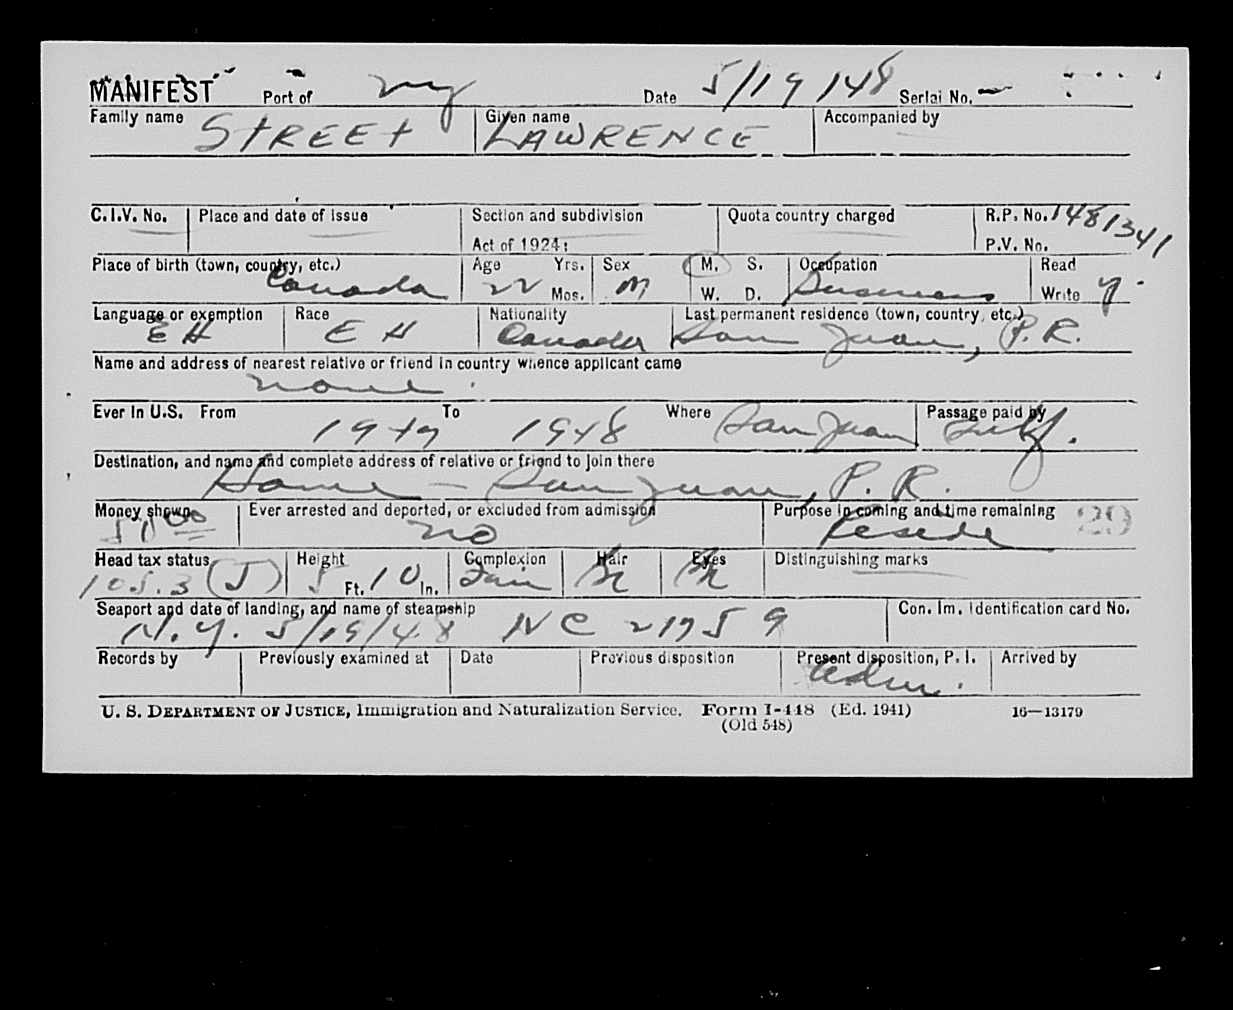 MANIFEST Port of NY Date 5/19/48 Serial No. —
Family name STREET Given name LAWRENCE Accompanied by
C.I.V. No. Place and date of issue Section and subdivision Quota country charged R.P. No. 1481341
Act of 1924: P.V. No.
Place of birth (town, country, etc.) Canada Age Yrs. Sex M M. S. Occupation Business Read
Mos. W. D. Write y.
Language or exemption EH Race EH Nationality Canada Last permanent residence (town, country, etc.) San Juan, P.R.
Name and address of nearest relative or friend in country whence applicant came
none
Ever in U.S. From To 1948 Where San Juan Passage paid by Self.
Destination, and name and complete address of relative or friend to join there
Home — San Juan, P.R.
Money shown Ever arrested and deported, or excluded from admission no Purpose in coming and time remaining Reside 29
Head tax status 105.3 (J) Height 5 Ft. 10 In. Complexion Fair Hair Br Eyes Br Distinguishing marks
Seaport and date of landing, and name of steamship Con. Im. Identification card No.
N.Y. 5/19/48 NC 21759
Records by Previously examined at Date Previous disposition Present disposition, P. I. Arrived by
Adm.
U. S. DEPARTMENT OF JUSTICE, Immigration and Naturalization Service. Form I-448 (Ed. 1941) 16—13179
(Old 548)